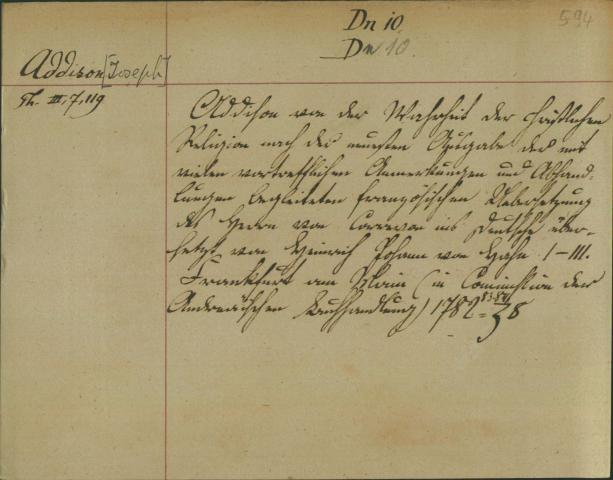 594
Dn 10.
Dn 10.
Addison [Joseph]
Th. III, 7, 119
Addison von der Wahrheit der christlichen
Religion nach der neuesten Ausgabe der mit
vielen vortrefflichen Anmerkungen und Abhand-
lungen begleiteten französischen Uebersetzung
des Herrn von Correvon ins Deutsche über-
setzt von Heinrich Johann von Hahn. I–III.
Frankfurt am Main (in Commission der
Andreäischen Buchhandlung) 1782
83. 84
8